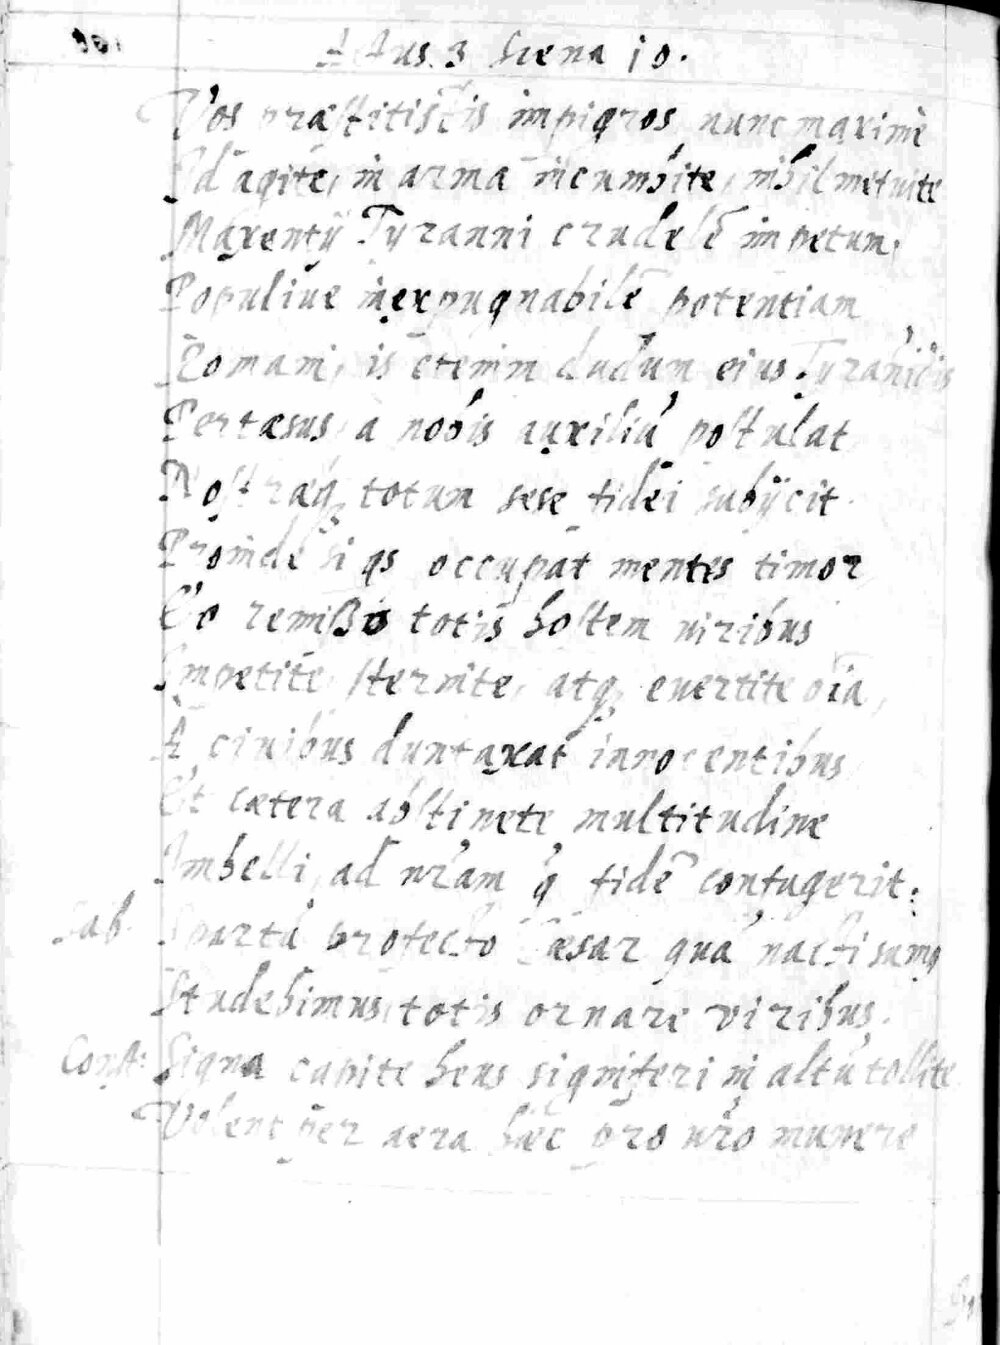 Actus 3 Scena 10.
Vos præstitistis impigros nunc maximè
Id agite, in arma incumbite, nihil metuite
Maxentij Tyranni crudelē impetum,
Populiue inexpugnabilē potentiam
Romani, is etenim dudum eius Tyrānidis
Pertæsus, a nobis auxiliū postulat
Nostræq; totum sese fidei subijcit.
Proinde si qs occupat mentes timor
Eo remißo totis hostem uiribus
Impetite, sternite, atq; euertite oīa,
A ciuibus duntaxat innocentibus
Et cætera abstinete multitudine
Imbelli, ad nrām q̄ fidē confugerit:
Sab. Spartā profecto Cæsar quā nacti sumq
Studebimus, totis ornare viribus.
Const: Signa capite heus signiferi in altū tollite
Volent per aera hæc pro nrō munere